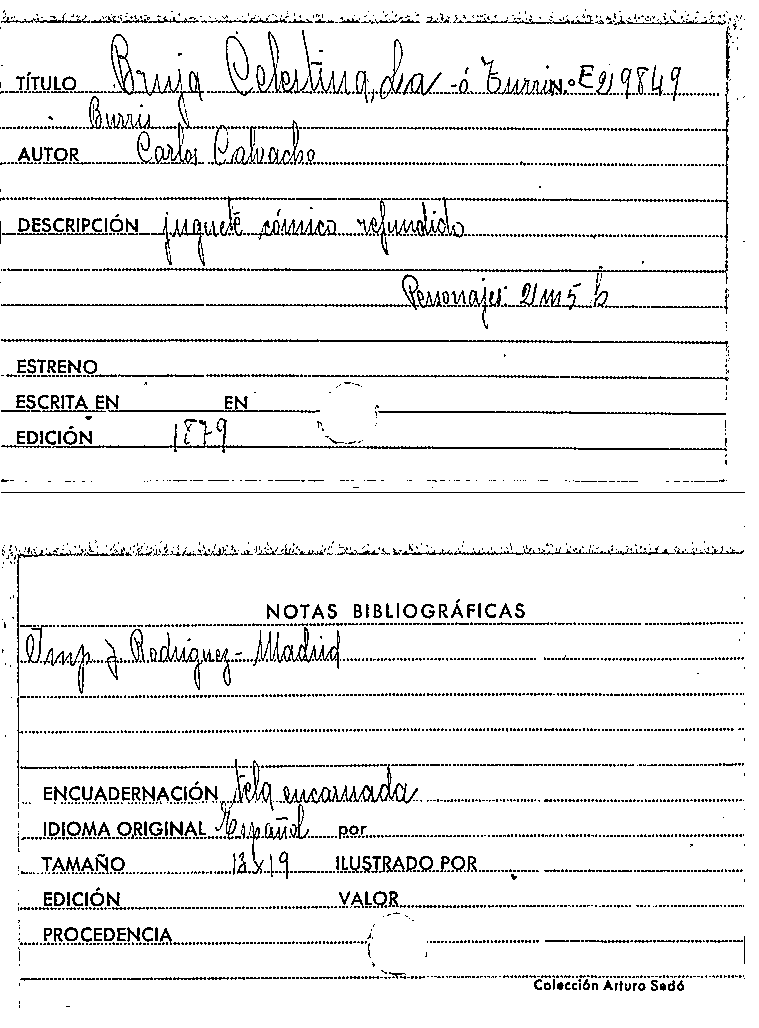 TÍTULO Bruja Celestina, La - ó Turris E 2) 9849
Burris
AUTOR Carlos Calvacho
DESCRIPCIÓN juguete cómico refundido
Personajes: 2 m 5 h
ESTRENO
ESCRITA EN EN
EDICIÓN 1879
NOTAS BIBLIOGRÁFICAS
Imp J Rodriguez - Madrid
ENCUADERNACIÓN tela encarnada
IDIOMA ORIGINAL Español por
TAMAÑO 13x19 ILUSTRADO POR
EDICIÓN VALOR
PROCEDENCIA
Colección Arturo Sedó